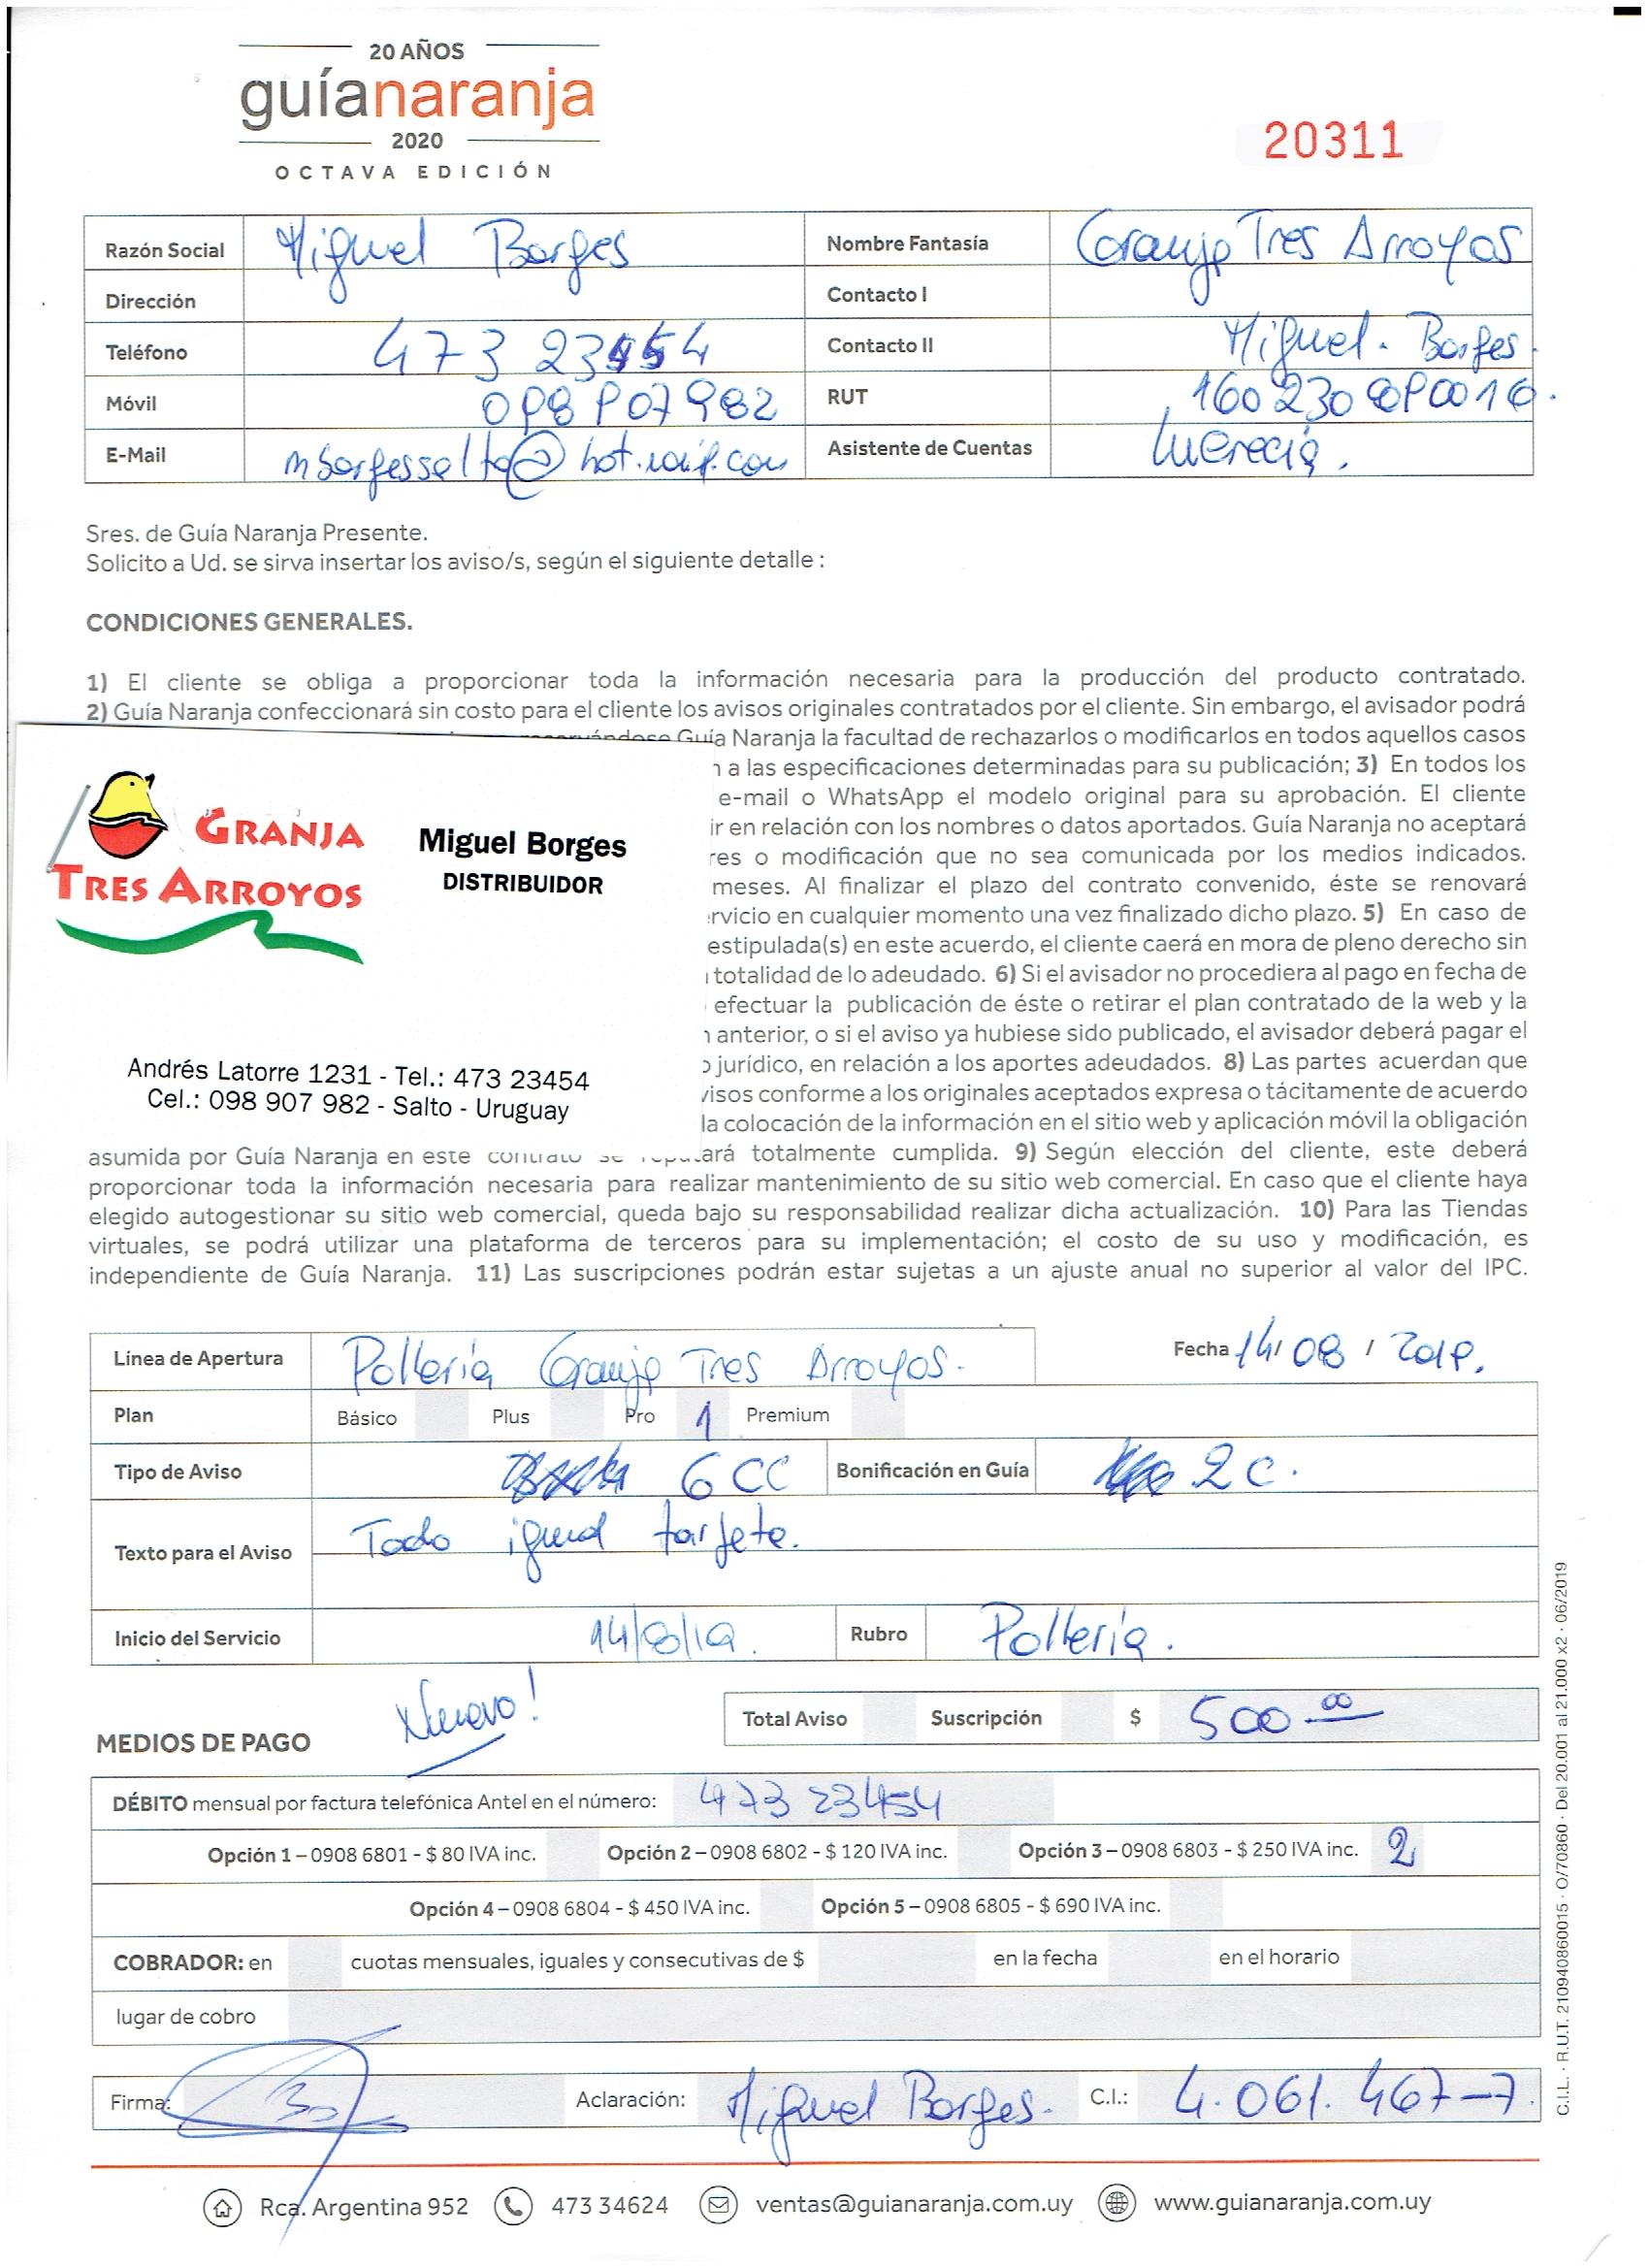 20 AÑOS
guíanaranja
2020
OCTAVA EDICIÓN
20311
Razón Social Miguel Borges Nombre Fantasía Granja Tres Arroyos
Dirección Contacto I
Teléfono 473 23454 Contacto II Miguel. Borges.
Móvil 098 907982 RUT
E-Mail mborgessalto@hotmail.com Asistente de Cuentas Lucrecia.
Sres. de Guía Naranja Presente.
Solicito a Ud. se sirva insertar los aviso/s, según el siguiente detalle :
CONDICIONES GENERALES.
1) El cliente se obliga a proporcionar toda la información necesaria para la producción del producto contratado.
2) Guía Naranja confeccionará sin costo para el cliente los avisos originales contratados por el cliente. Sin embargo, el avisador podrá
reservándose Guía Naranja la facultad de rechazarlos o modificarlos en todos aquellos casos
a las especificaciones determinadas para su publicación; 3) En todos los
e-mail o WhatsApp el modelo original para su aprobación. El cliente
ir en relación con los nombres o datos aportados. Guía Naranja no aceptará
res o modificación que no sea comunicada por los medios indicados.
meses. Al finalizar el plazo del contrato convenido, éste se renovará
rvicio en cualquier momento una vez finalizado dicho plazo. 5) En caso de
estipulada(s) en este acuerdo, el cliente caerá en mora de pleno derecho sin
totalidad de lo adeudado. 6) Si el avisador no procediera al pago en fecha de
efectuar la publicación de éste o retirar el plan contratado de la web y la
anterior, o si el aviso ya hubiese sido publicado, el avisador deberá pagar el
jurídico, en relación a los aportes adeudados. 8) Las partes acuerdan que
visos conforme a los originales aceptados expresa o tácitamente de acuerdo
la colocación de la información en el sitio web y aplicación móvil la obligación
GRANJA
TRES ARROYOS
Miguel Borges
DISTRIBUIDOR
Andrés Latorre 1231 - Tel.: 473 23454
Cel.: 098 907 982 - Salto - Uruguay
asumida por Guía Naranja en este contrato se reputará totalmente cumplida. 9) Según elección del cliente, este deberá
proporcionar toda la información necesaria para realizar mantenimiento de su sitio web comercial. En caso que el cliente haya
elegido autogestionar su sitio web comercial, queda bajo su responsabilidad realizar dicha actualización. 10) Para las Tiendas
virtuales, se podrá utilizar una plataforma de terceros para su implementación; el costo de su uso y modificación, es
independiente de Guía Naranja. 11) Las suscripciones podrán estar sujetas a un ajuste anual no superior al valor del IPC.
Línea de Apertura Pollería Granja Tres Arroyos. Fecha 14/ 08 / 2019.
Plan Básico Plus Pro 1 Premium
Tipo de Aviso 6 CC Bonificación en Guía 2 C.
Texto para el Aviso Todo igual tarjeta.
Inicio del Servicio 14/8/19. Rubro Pollería.
Nuevo!
Total Aviso Suscripción $ 500 00
MEDIOS DE PAGO
DÉBITO mensual por factura telefónica Antel en el número: 473 23454
Opción 1 – 0908 6801 - $ 80 IVA inc. Opción 2 – 0908 6802 - $ 120 IVA inc. Opción 3 – 0908 6803 - $ 250 IVA inc. 2
Opción 4 – 0908 6804 - $ 450 IVA inc. Opción 5 – 0908 6805 - $ 690 IVA inc.
COBRADOR: en cuotas mensuales, iguales y consecutivas de $ en la fecha en el horario
lugar de cobro
Firma: Aclaración: Miguel Borges. C.I.: 4.061.467-7.
Rca. Argentina 952 473 34624 ventas@guianaranja.com.uy www.guianaranja.com.uy
C.I.L. · R.U.T. 210940860015 · O/70860 · Del 20.001 al 21.000 x2 · 06/2019